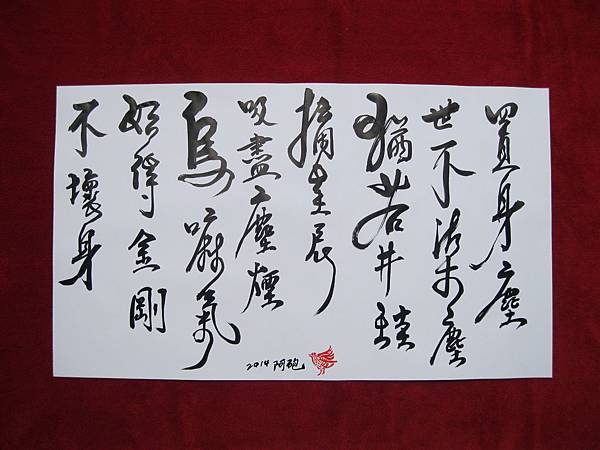 置身塵
世不染塵
猶若井
摘星辰
吸盡塵煙
烏嘛氣
始得金剛
不壞身
2014 阿砲